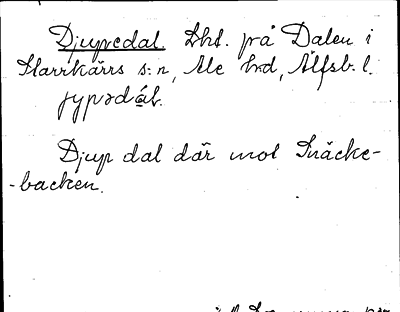 Djupedal. Lht. på Dalen i
Starrkärrs s:n, Ale hd, Älfsb. l.
jypədál.
Djup dal där mot Snäcke-
-backen.